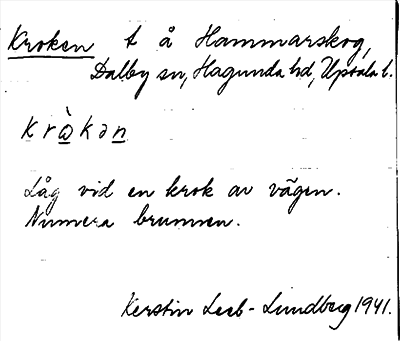 Kroken t å Hammarskog,
Dalby sn, Hagunda hd, Upsala l.
krὼkən
Låg vid en krok av vägen.
Numera brunnen.
Kerstin Leeb-Lundberg 1941.